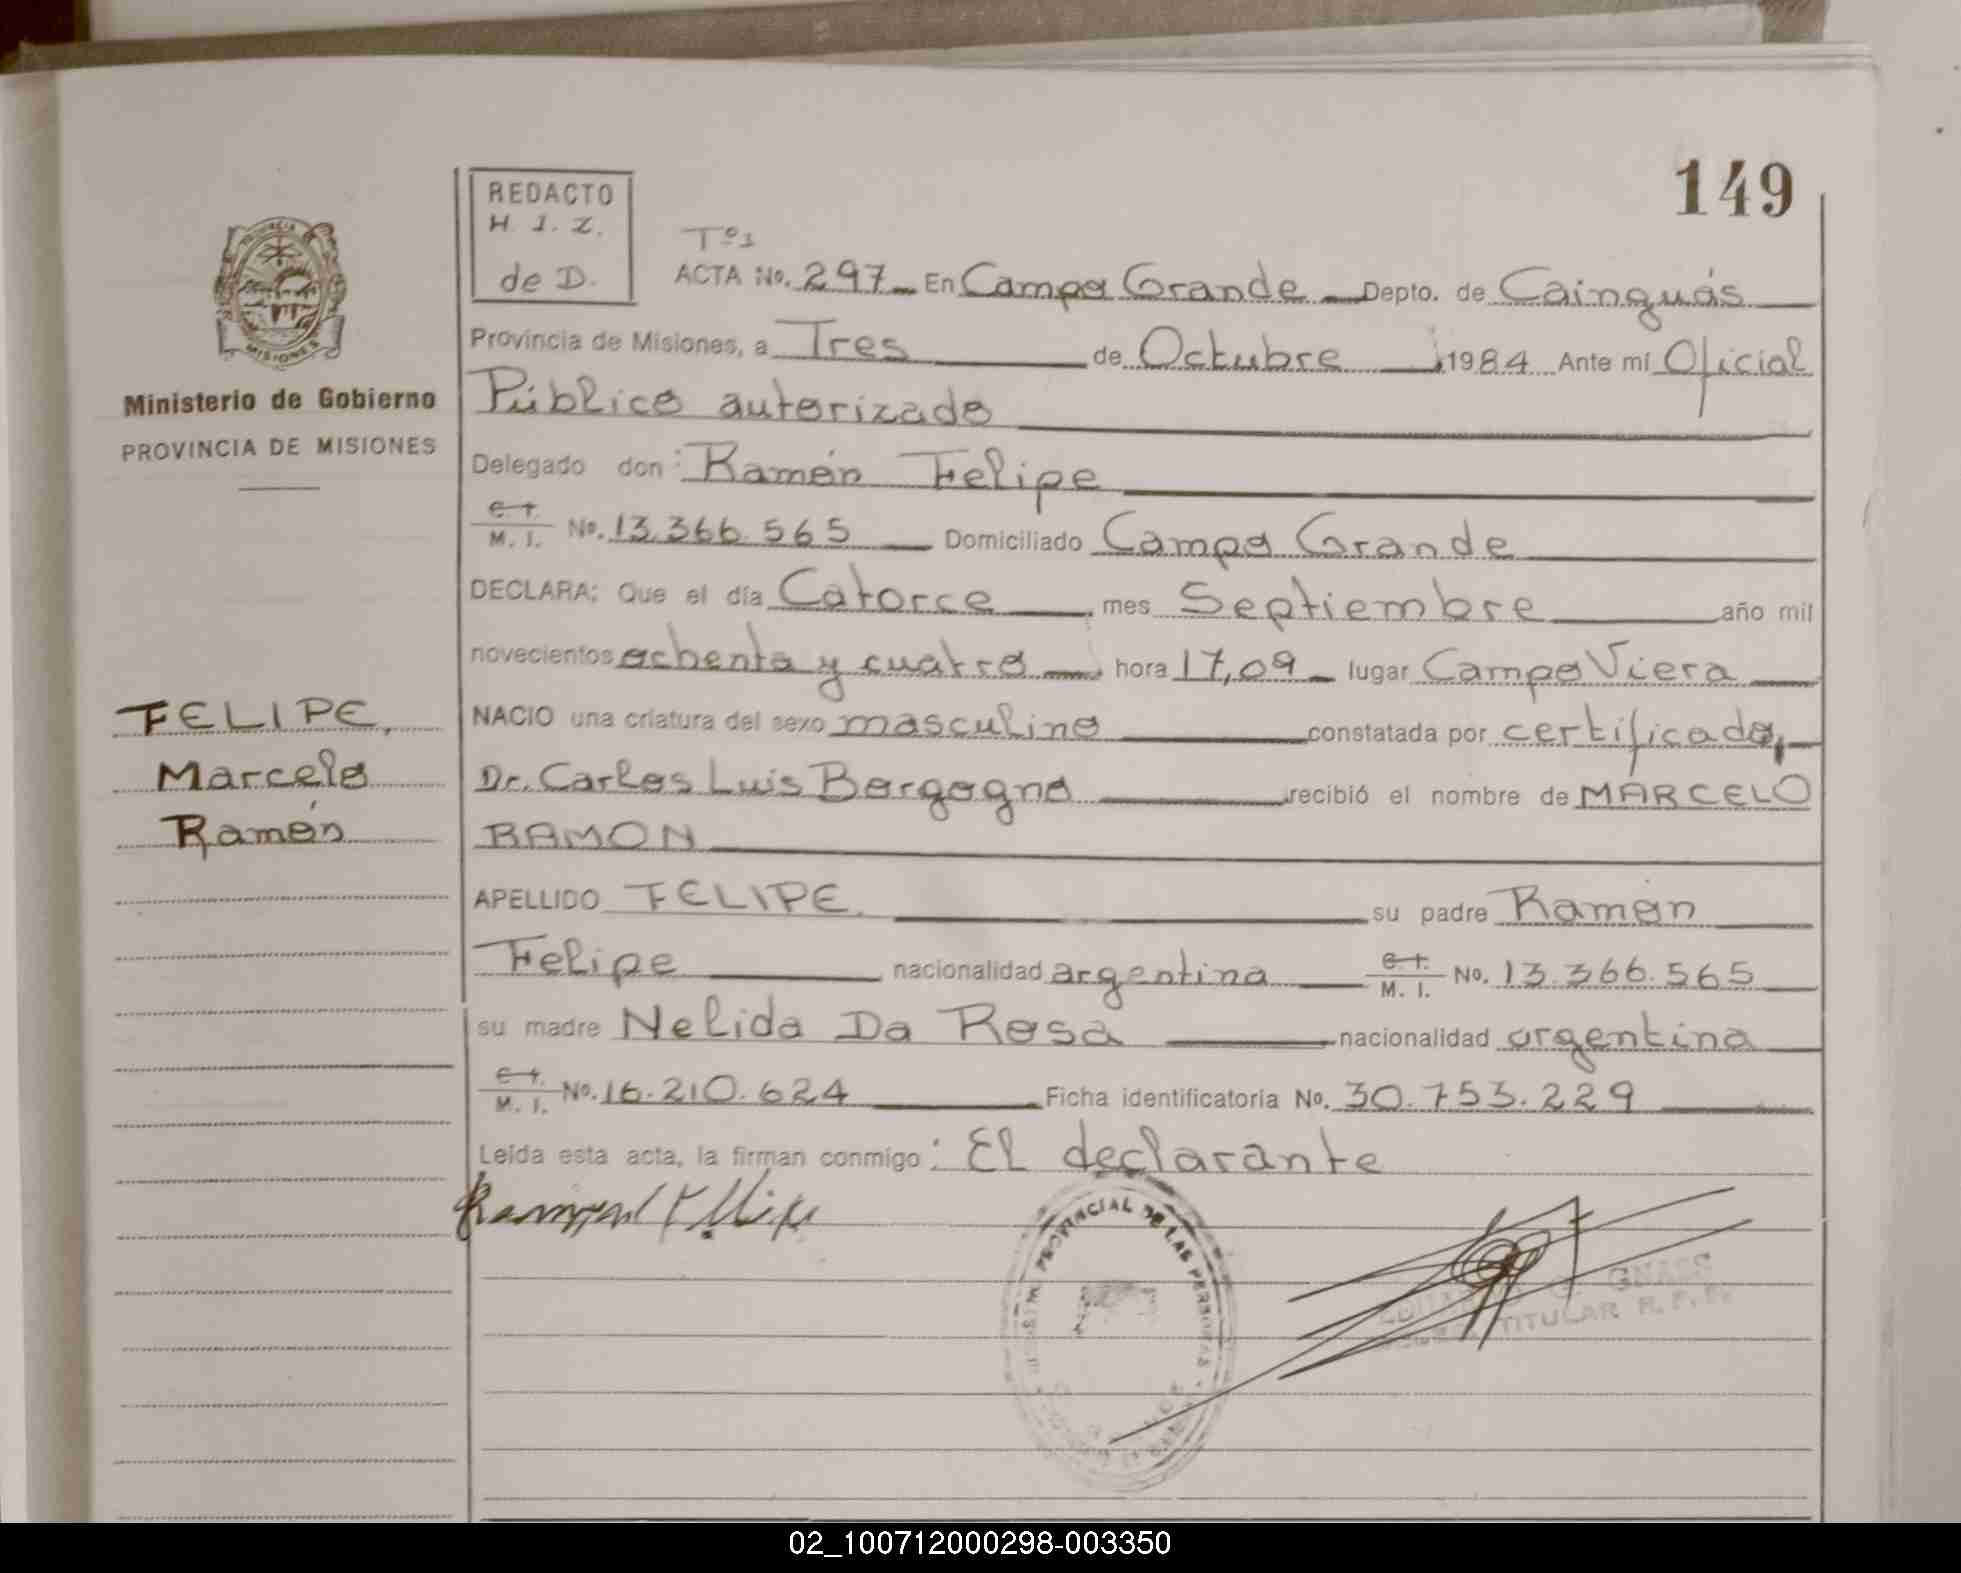 149
REDACTO
H. I. Z.
de D.
Tº 1
ACTA No. 297 En Campo Grande Depto. de Cainguás
Provincia de Misiones, a Tres de Octubre 1984 Ante mí Oficial
Público autorizado
Delegado don: Ramón Felipe
C. I. M. I. No. 13.366.565 Domiciliado Campo Grande
DECLARA: Que el día Catorce mes Septiembre año mil
novecientos ochenta y cuatro hora 17,09 lugar Campo Viera
NACIO una criatura del sexo masculino constatada por certificado,
Dr. Carlos Luis Borgogno recibió el nombre de MARCELO
RAMON
APELLIDO FELIPE su padre Ramón
Felipe nacionalidad argentina C. I. M. I. No. 13.366.565
su madre Nelida Da Rosa nacionalidad argentina
C. I. M. I. No. 16.210.624 Ficha identificatoria No. 30.753.229
Leída esta acta, la firman conmigo: El declarante
PROVINCIA
MISIONES
Ministerio de Gobierno
PROVINCIA DE MISIONES
FELIPE,
Marcelo
Ramón
PROVINCIAL DE LAS PERSONAS
TITULAR R. P. P.
02_100712000298-003350